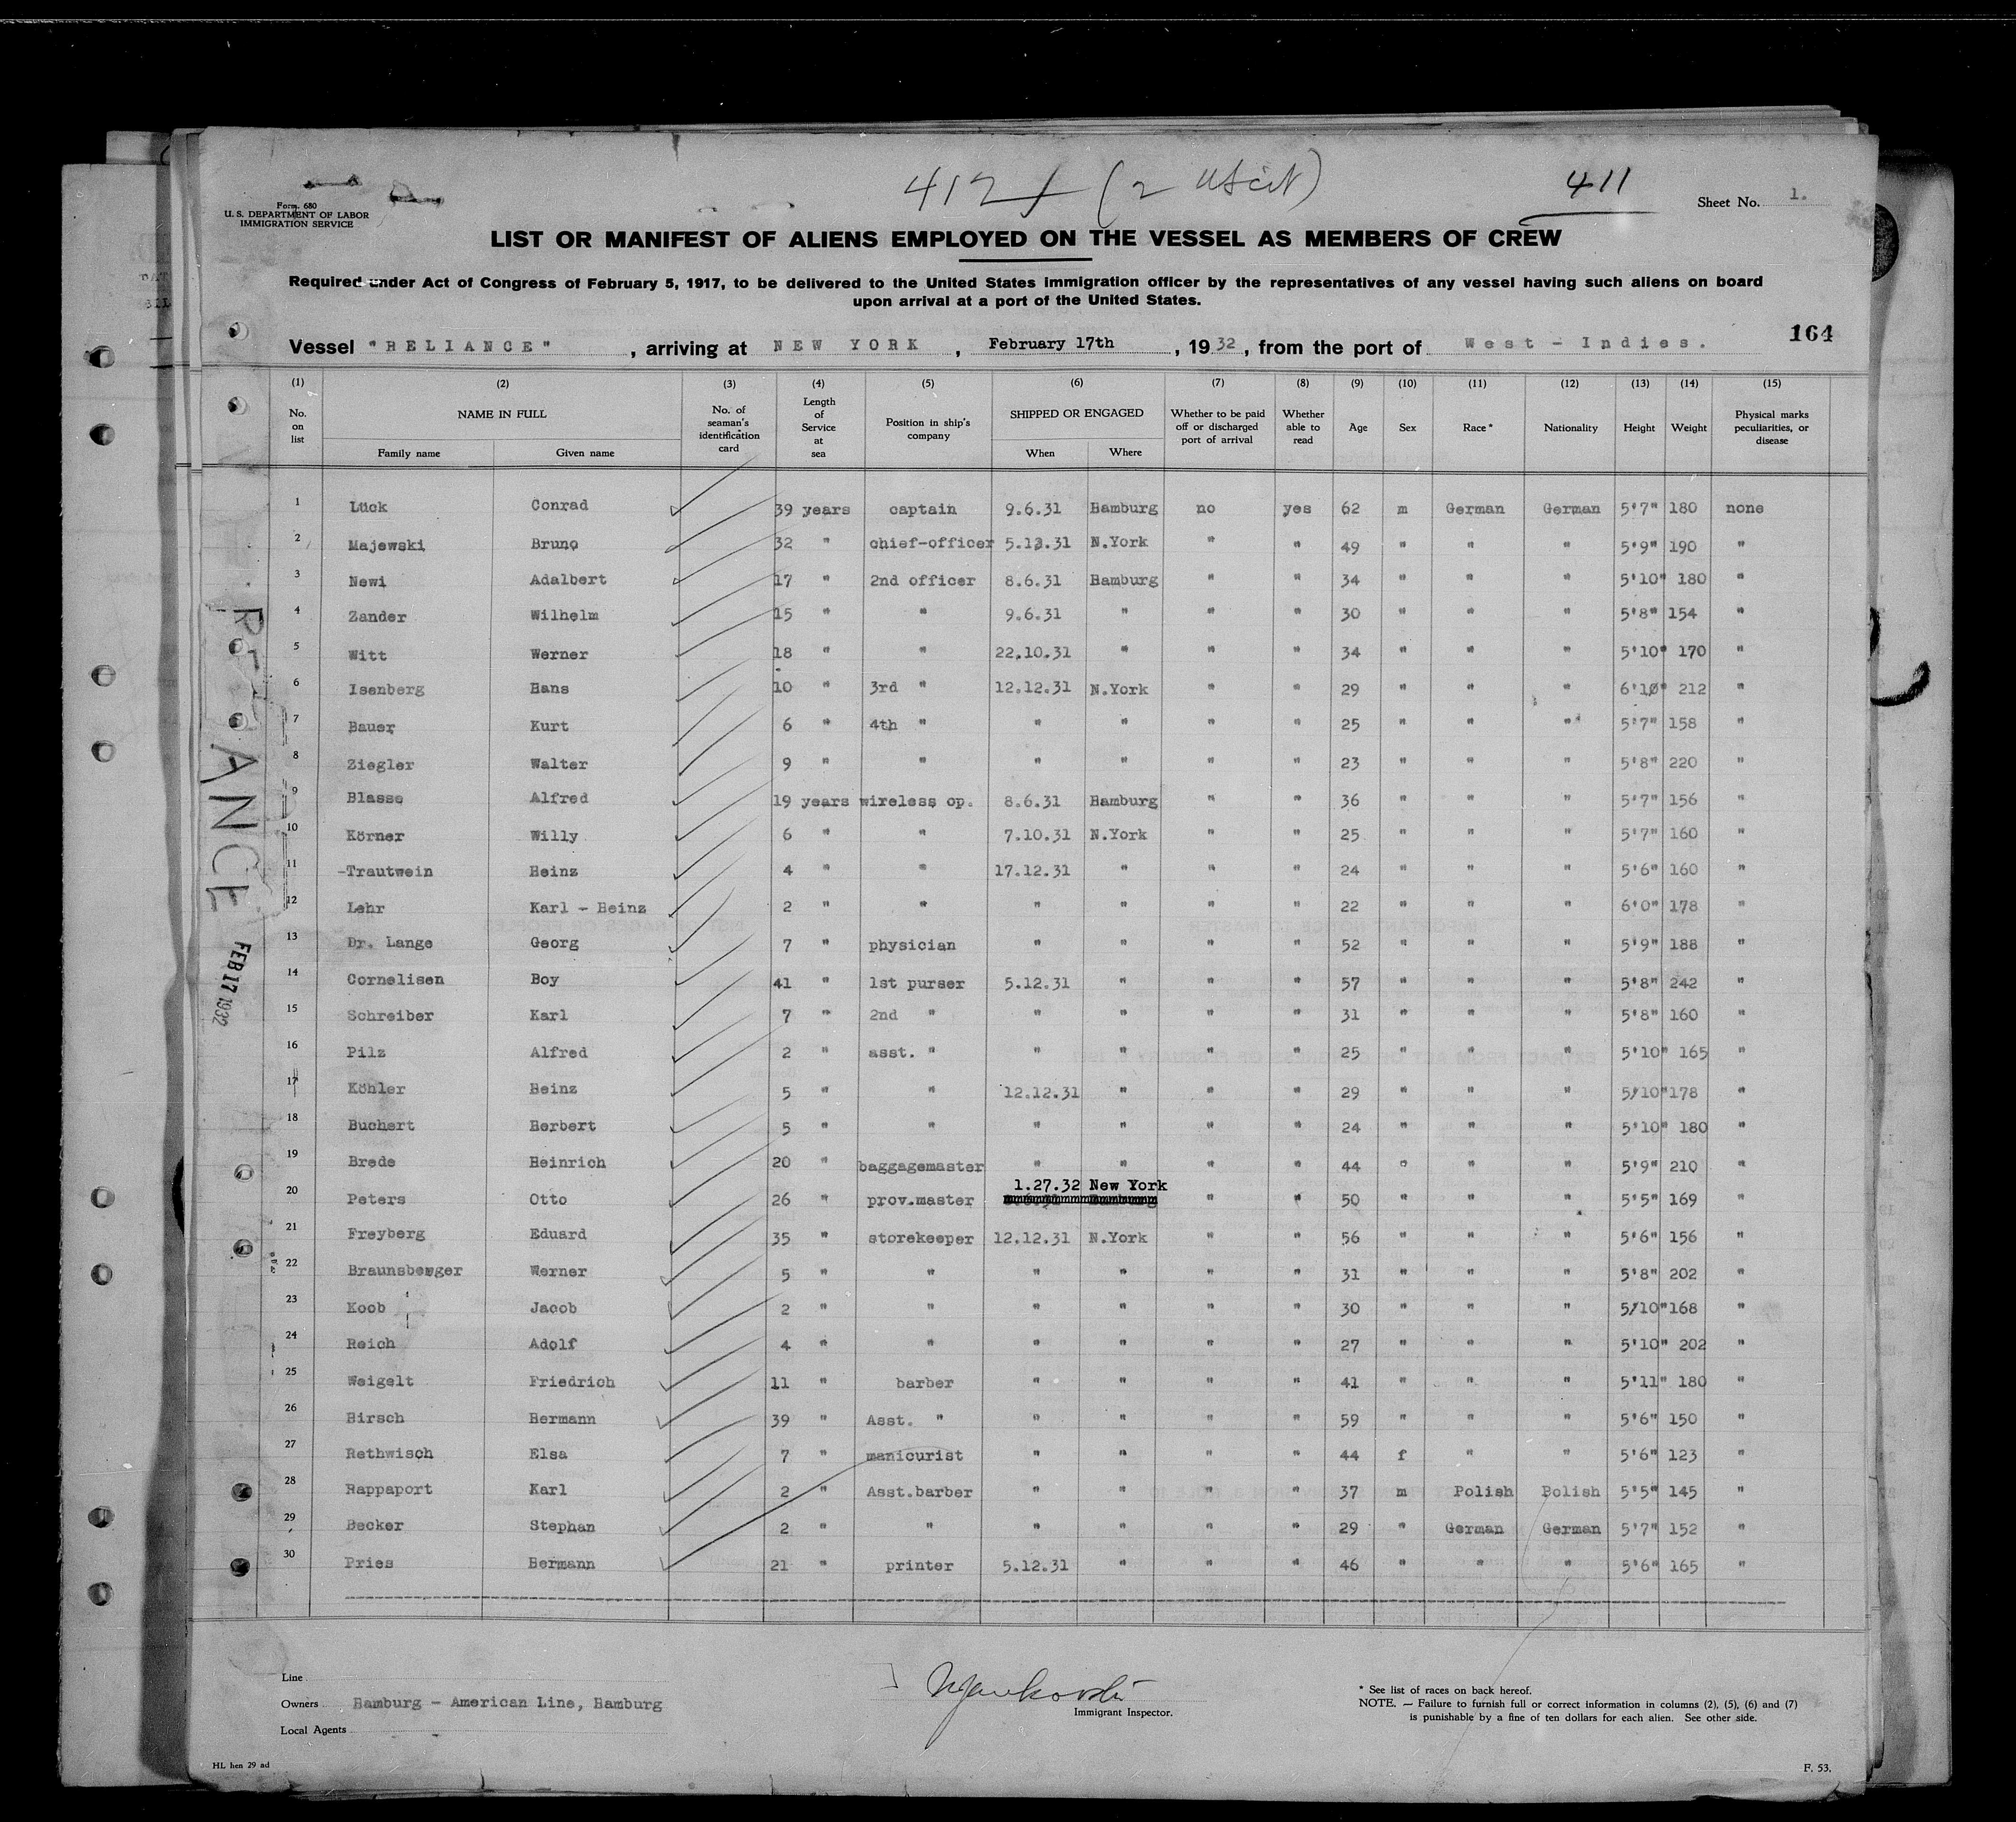 412 (2 US cit)
411
Form 680
U. S. DEPARTMENT OF LABOR
IMMIGRATION SERVICE
Sheet No. 1.
LIST OR MANIFEST OF ALIENS EMPLOYED ON THE VESSEL AS MEMBERS OF CREW
Required under Act of Congress of February 5, 1917, to be delivered to the United States immigration officer by the representatives of any vessel having such aliens on board
upon arrival at a port of the United States.
164
Vessel "RELIANCE", arriving at NEW YORK, February 17th, 1932, from the port of West - Indies.
(1) (2) (3) (4) (5) (6) (7) (8) (9) (10) (11) (12) (13) (14) (15)
No. on list NAME IN FULL Family name Given name No. of seaman's identification card Length of Service at sea Position in ship's company SHIPPED OR ENGAGED When Where Whether to be paid off or discharged port of arrival Whether able to read Age Sex Race* Nationality Height Weight Physical marks peculiarities, or disease
1 Lück Conrad 39 years captain 9.6.31 Hamburg no yes 62 m German German 5'7" 180 none
2 Majewski Bruno 32 " chief-officer 5.12.31 N.York " " 49 " " " 5'9" 190 "
3 Newi Adalbert 17 " 2nd officer 8.6.31 Hamburg " " 34 " " " 5'10" 180 "
4 Zander Wilhelm 15 " " 9.6.31 " " " 30 " " " 5'8" 154 "
5 Witt Werner 18 " " 22.10.31 " " " 34 " " " 5'10" 170 "
6 Isenberg Hans 10 " 3rd " 12.12.31 N.York " " 29 " " " 6'10" 212 "
7 Bauer Kurt 6 " 4th " " " " " 25 " " " 5'7" 158 "
8 Ziegler Walter 9 " " " " " " 23 " " " 5'8" 220 "
9 Blasse Alfred 19 years wireless op. 8.6.31 Hamburg " " 36 " " " 5'7" 156 "
10 Körner Willy 6 " " 7.10.31 N.York " " 25 " " " 5'7" 160 "
11 -Trautwein Heinz 4 " " 17.12.31 " " " 24 " " " 5'6" 160 "
12 Lehr Karl - Heinz 2 " " " " " " 22 " " " 6'0" 178 "
13 Dr. Lange Georg 7 " physician " " " " 52 " " " 5'9" 188 "
14 Cornelisen Boy 41 " 1st purser 5.12.31 " " " 57 " " " 5'8" 242 "
15 Schreiber Karl 7 " 2nd " " " " " 31 " " " 5'8" 160 "
16 Pilz Alfred 2 " asst. " " " " " 25 " " " 5'10" 165 "
17 Köhler Heinz 5 " " 12.12.31 " " " 29 " " " 5'10" 178 "
18 Buchert Herbert 5 " " " " " " 24 " " " 5'10" 180 "
19 Brede Heinrich 20 " baggagemaster " " " " 44 " " " 5'9" 210 "
1.27.32 New York
20 Peters Otto 26 " prov.master " " 50 " " " 5'5" 169 "
21 Freyberg Eduard 35 " storekeeper 12.12.31 N.York " " 56 " " " 5'6" 156 "
22 Braunsberger Werner 5 " " " " " " 31 " " " 5'8" 202 "
23 Koob Jacob 2 " " " " " " 30 " " " 5'10" 168 "
24 Reich Adolf 4 " " " " " " 27 " " " 5'10" 202 "
25 Weigelt Friedrich 11 " barber " " " " 41 " " " 5'11" 180 "
26 Hirsch Hermann 39 " Asst. " " " " " 59 " " " 5'6" 150 "
27 Rethwisch Elsa 7 " manicurist " " " " 44 f " " 5'6" 123 "
28 Rappaport Karl 2 " Asst.barber " " " " 37 m Polish Polish 5'5" 145 "
29 Becker Stephan 2 " " " " " " 29 " German German 5'7" 152 "
30 Pries Hermann 21 " printer 5.12.31 " " " 46 " " " 5'6" 165 "
RELIANCE
FEB 17 1932
Line
Owners Hamburg - American Line, Hamburg
Local Agents
Immigrant Inspector.
* See list of races on back hereof.
NOTE. — Failure to furnish full or correct information in columns (2), (5), (6) and (7)
is punishable by a fine of ten dollars for each alien. See other side.
HL hen 29 ad
F. 53.